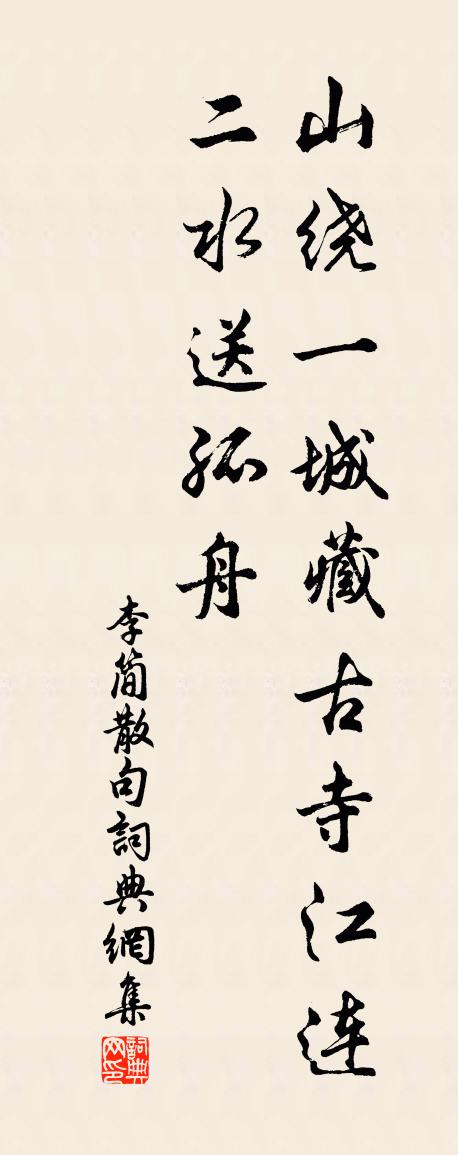 山绕一城藏古寺江连
二水送孤舟
李简散句詞典網集
詞典网印